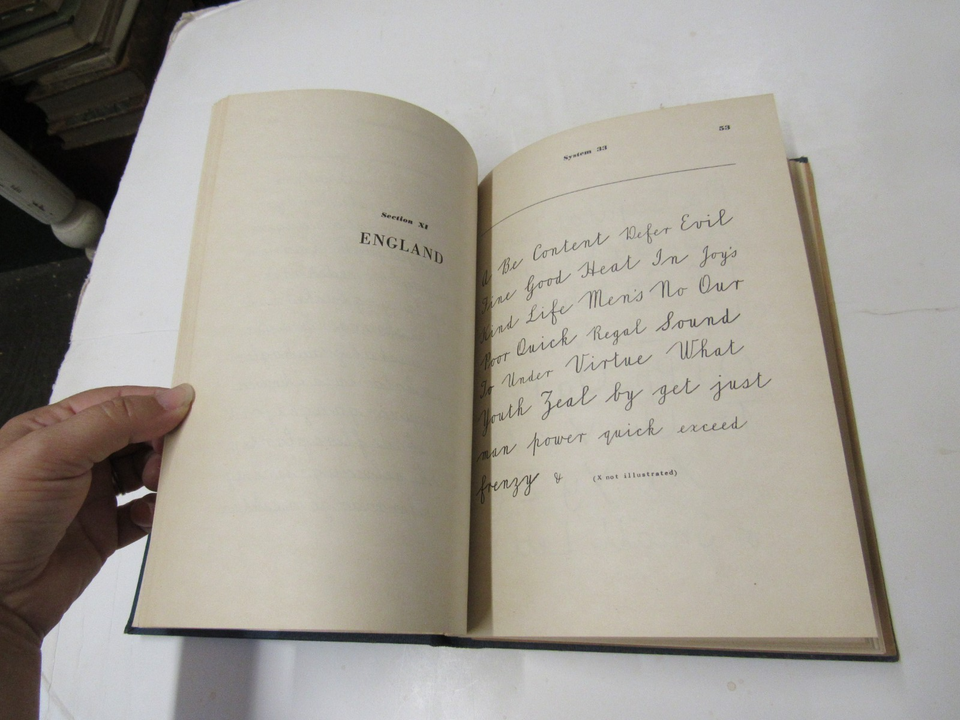 Section XI
ENGLAND
System 33
53
Be Content Defer Evil
Fine Good Heat In Joy's
Kind Life Men's No Our
Poor Quick Regal Sound
To Under Virtue What
Youth Zeal by get just
man power quick exceed
frenzy & (X not illustrated)